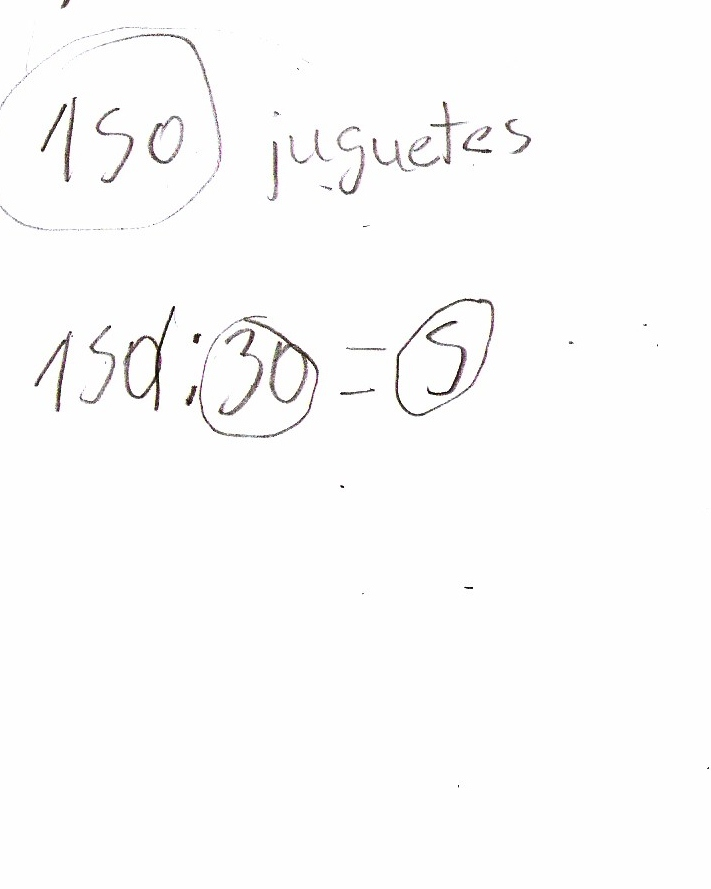 150 juguetes
150:30=5